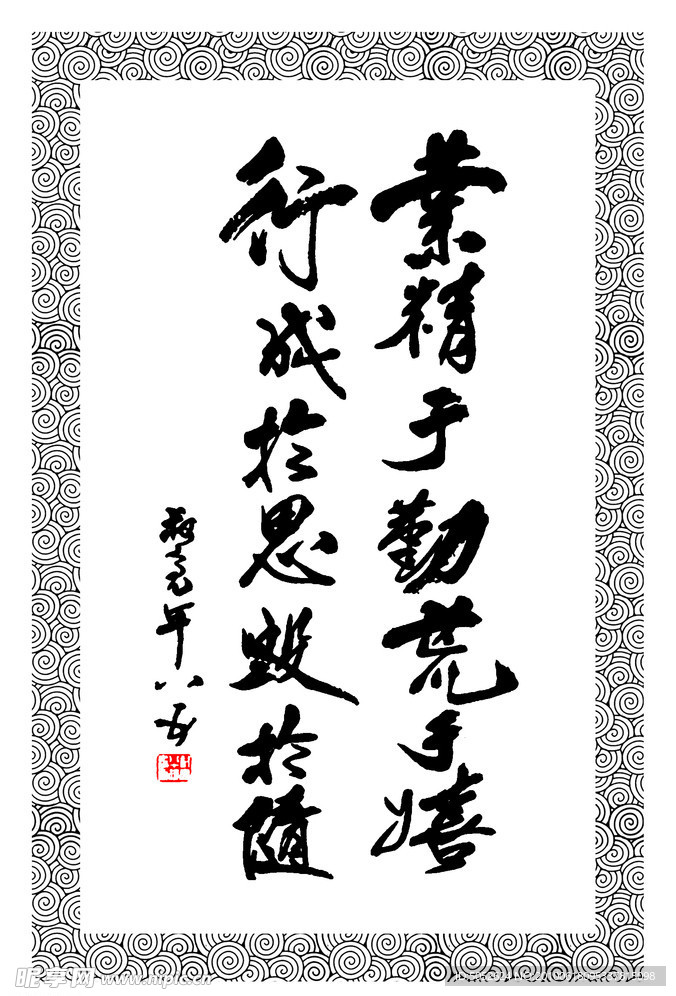 業精于勤荒于嬉
行成於思毁於隨
蘇局仙年八五
昵享网 www.nipic.cn